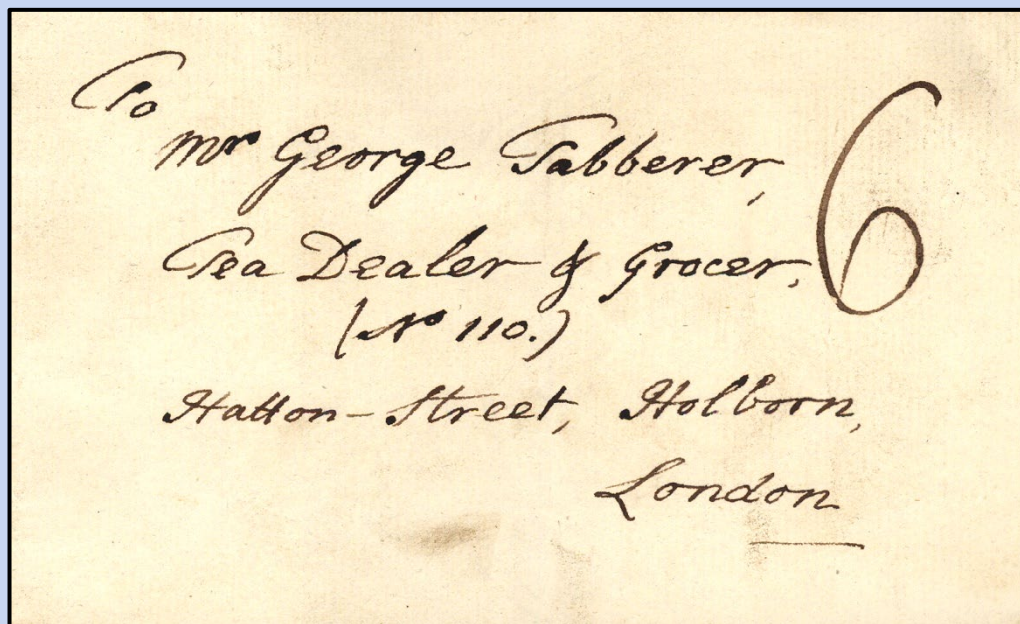 To
Mr George Tabberer,
Tea Dealer & Grocer,
6
(No 110.)
Hatton-Street, Holborn,
London